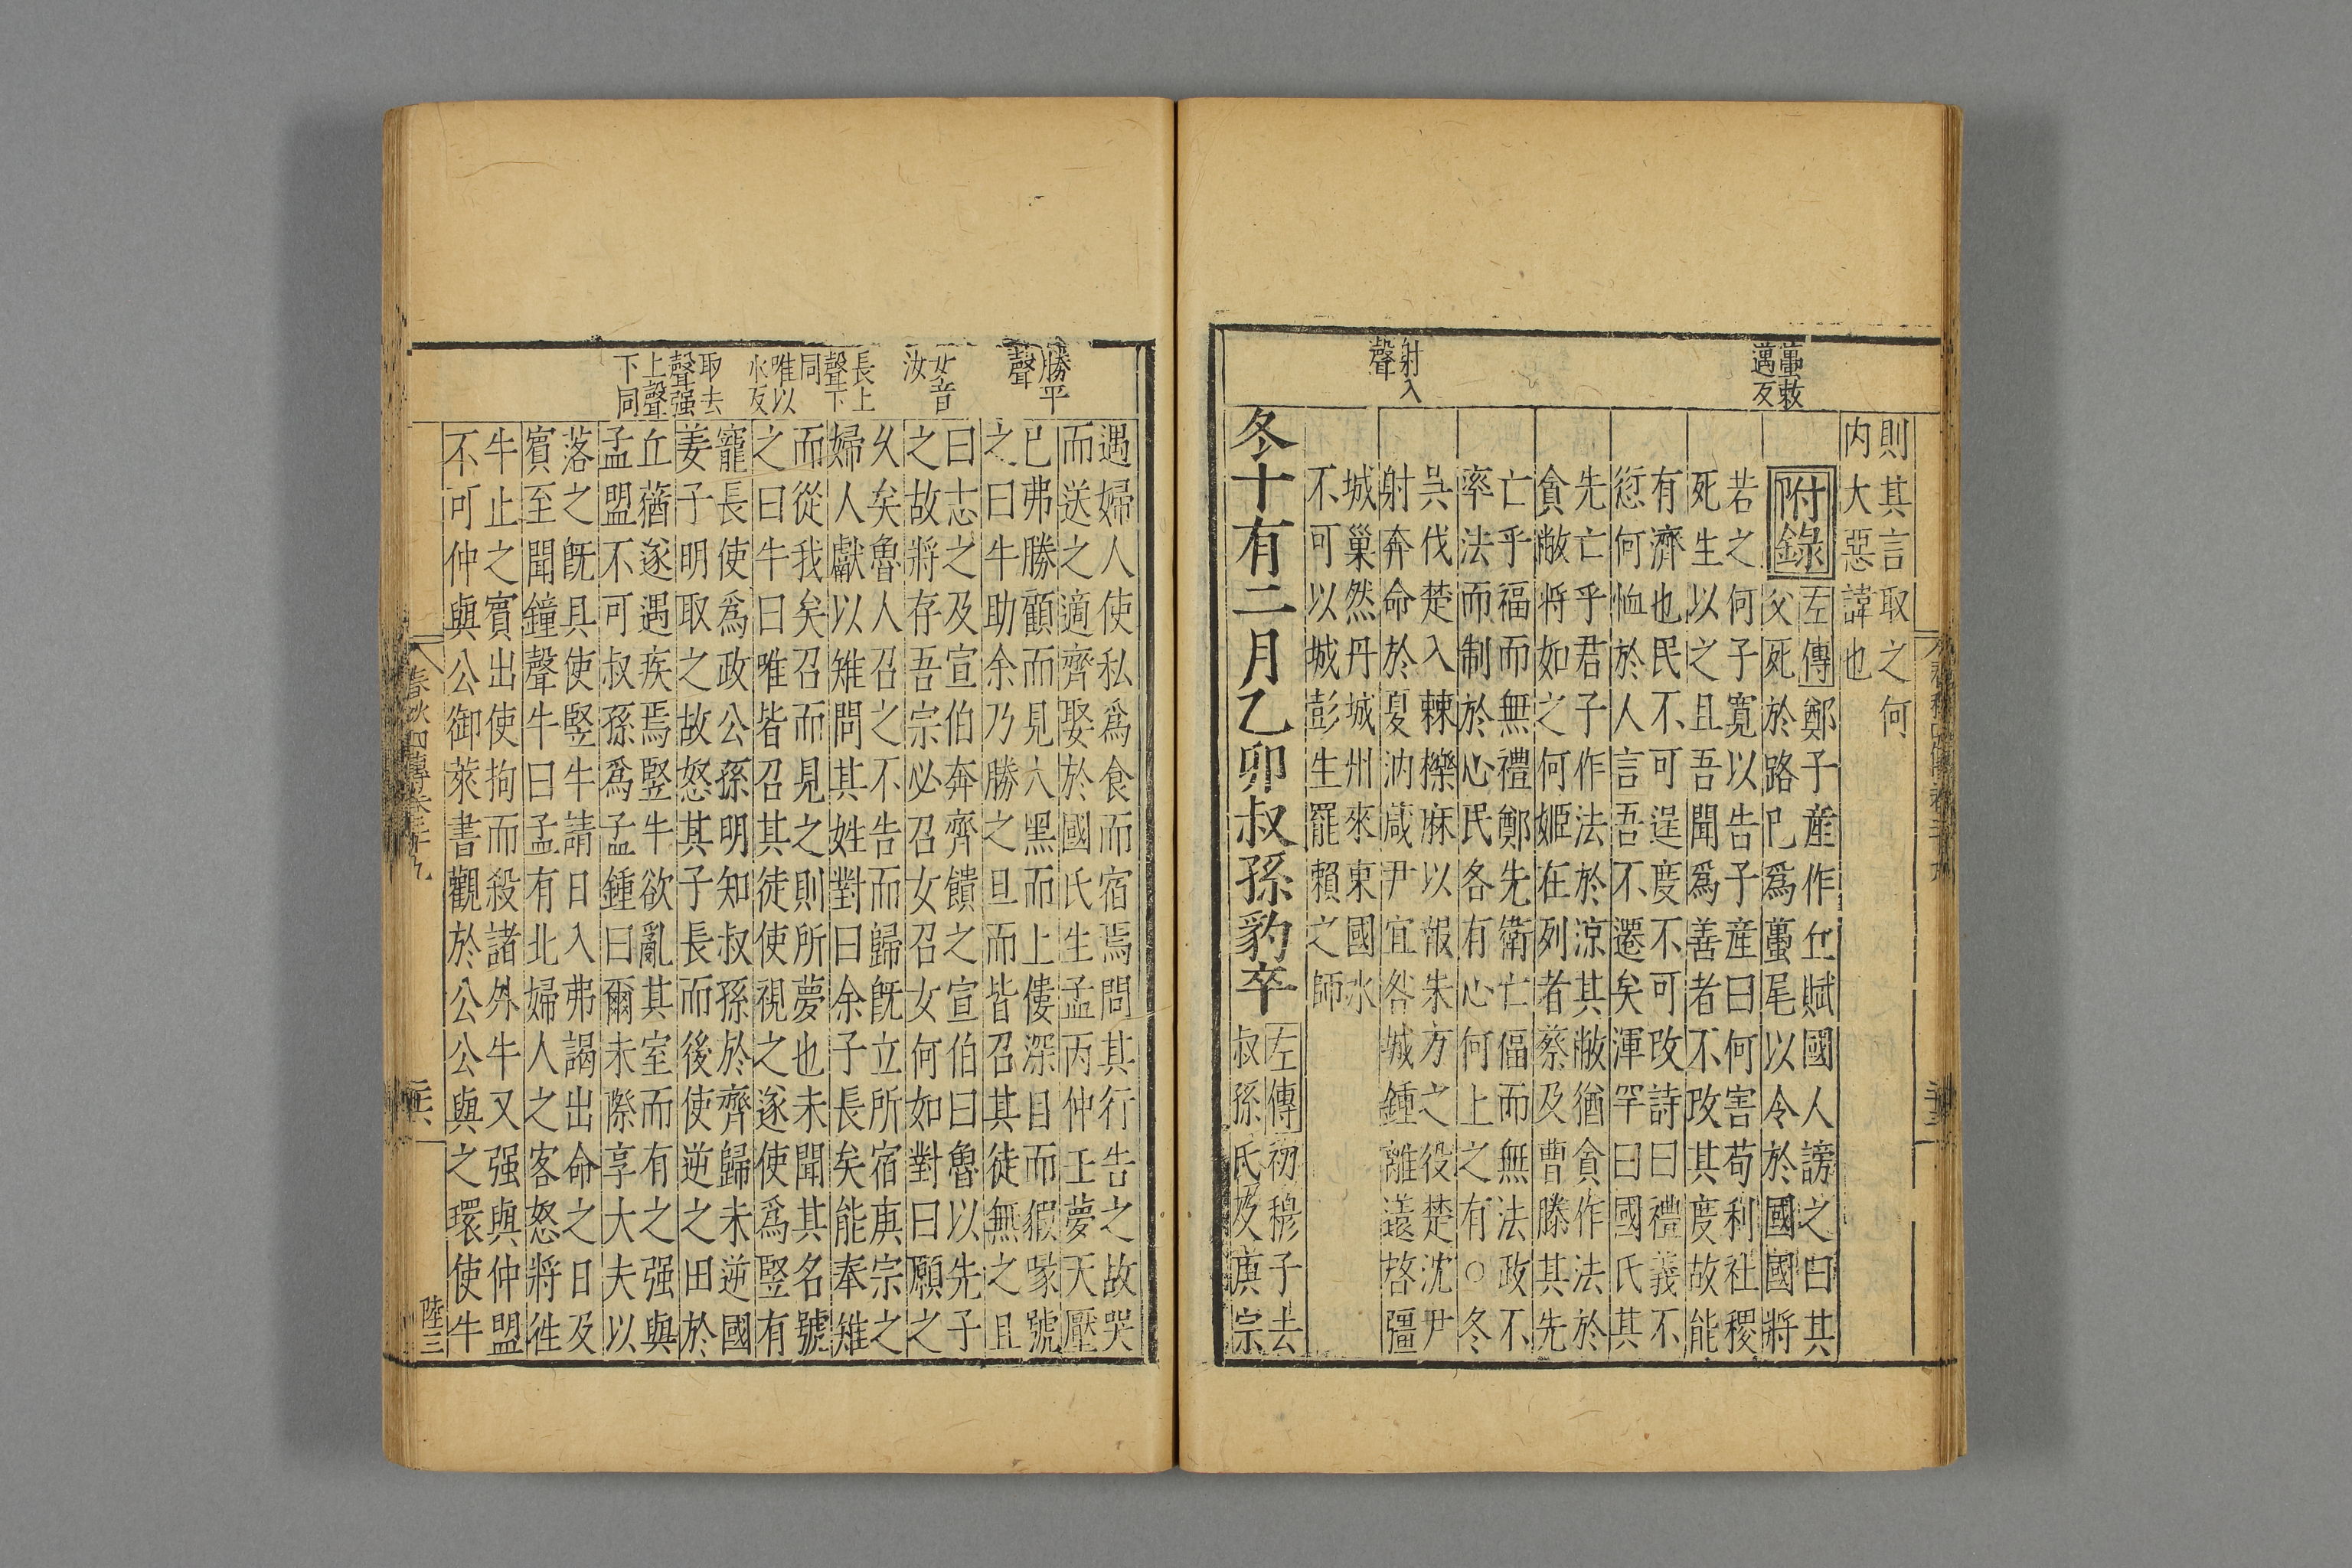 蠆敕
邁反
射入
聲
則其言取之何
内大惡諱也
附錄
左傳鄭子産作丘賦國人謗之曰其
父死於路已爲蠆尾以令於國國將
若之何子寬以告子産曰何害苟利社稷
死生以之且吾聞爲善者不改其度故能
有濟也民不可逞度不可改詩曰禮義不
愆何恤於人言吾不遷矣渾罕曰國氏其
先亡乎君子作法於涼其敝猶貪作法於
貪敝將如之何姬在列者蔡及曹滕其先
亡乎偪而無禮鄭先衛亡偪而無法政不
率法而制於心民各有心何上之有○冬
吳伐楚入棘櫟麻以報朱方之役楚沈尹
射奔命於夏汭葴尹宜咎城鍾離薳啓彊
城巢然丹城州來東國水
不可以城彭生罷賴之師
冬十有二月乙卯叔孫豹卒
左傳初穆子去
叔孫氏及庚宗
勝平
聲
女音
汝
長上
聲下
同
唯以
水反
取去
聲强
上聲
下同
遇婦人使私爲食而宿焉問其行告之故哭
而送之適齊娶於國氏生孟丙仲壬夢天壓
已弗勝顧而見人黑而上僂深目而豭喙號
之曰牛助余乃勝之旦而皆召其徒無之且
曰志之及宣伯奔齊饋之宣伯曰魯以先子
之故將存吾宗必召女召女何如對曰願之
久矣魯人召之不告而歸旣立所宿庚宗之
婦人獻以雉問其姓對曰余子長矣能奉雉
而從我矣召而見之則所夢也未聞其名號
之曰牛曰唯皆召其徒使視之遂使爲豎有
寵長使爲政公孫明知叔孫於齊歸未逆國
姜子明取之故怒其子長而後使逆之田於
丘蕕遂遇疾焉豎牛欲亂其室而有之强與
孟盟不可叔孫爲孟鍾曰爾未際享大夫以
落之旣具使豎牛請日入弗謁出命之日及
賓至聞鐘聲牛曰孟有北婦人之客怒將往
牛止之賓出使拘而殺諸外牛又强與仲盟
不可仲與公御萊書觀於公公與之環使牛
春秋四傳卷三十九
陸三